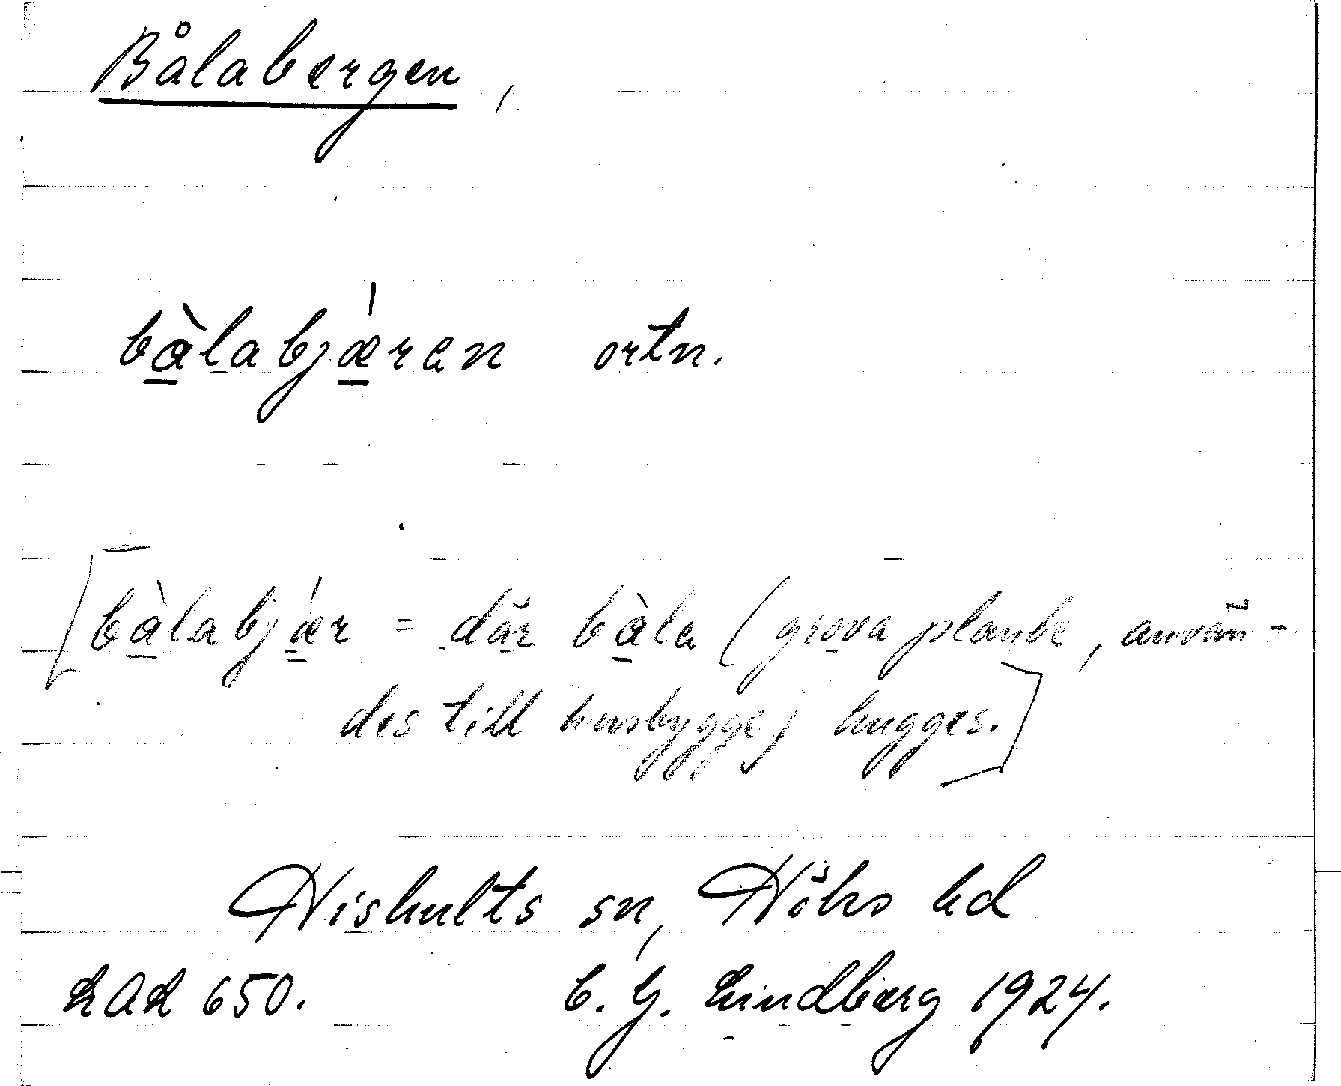 Bålabergen,
bàlabjǽren ortn.
[bàlabjǽr = där bàla (grova plank, använ-
des till husbygge) hugges.]
Hishults sn, Höks hd
LAL 650. C. G. Lindberg 1924.